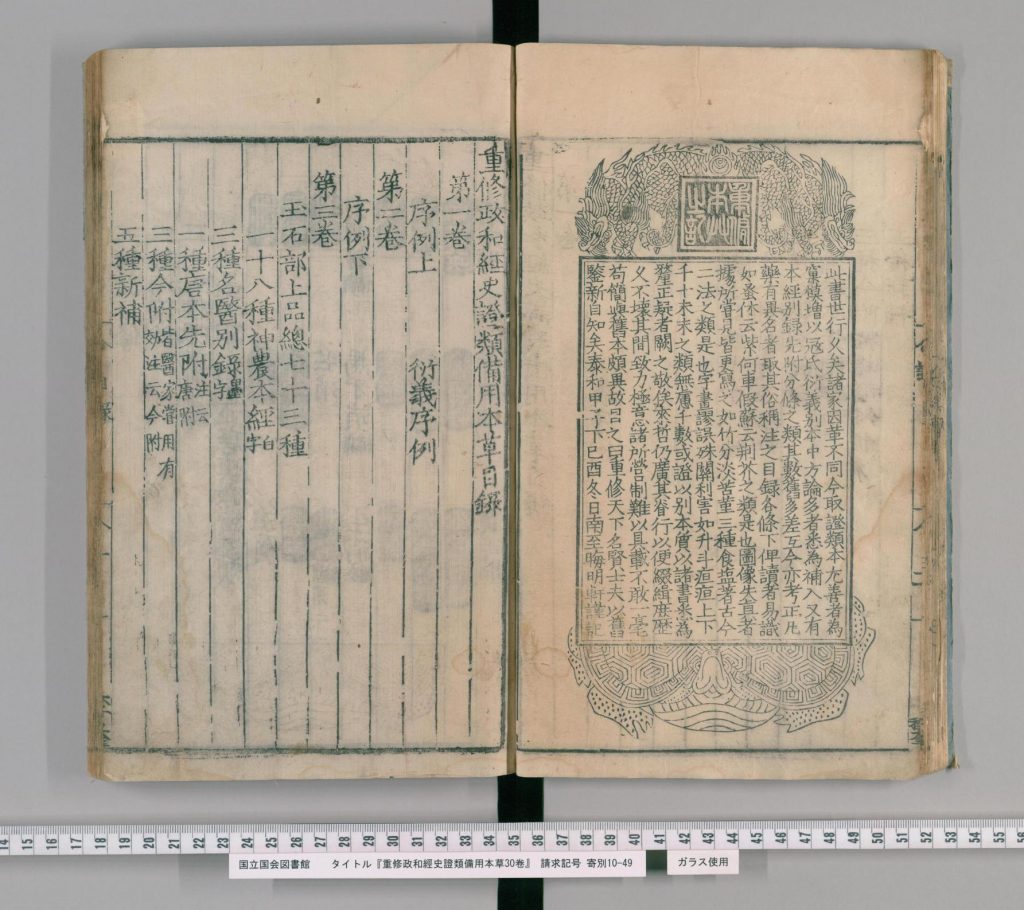 重脩
本艸
之記
此書世行久矣諸家因革不同今取證類本尤善者為
窠模增以冦氏衍義別本中方論多者悉為補入又有
本經別録先附分條之類其數舊多差互今亦考正凡
藥有異名者取其俗稱注之目録各條下俾讀者易識
如蚤休云紫何車假蘇云荆芥之類是也圖像失真者
據所嘗見皆更寫之如竹分淡苦菫三種食塩著古今
二法之類是也字書謬誤殊關利害如升斗疽疸上下
千十未末之類無慮千數或證以別本質以諸書悉為
釐正疑者闕之敬俟來哲仍廣其脊行以便綴緝庶歴
久不壞其間致力極意諸所營制難以具載不敢一毫
苟簡與舊本頗異故目之曰重修天下名賢士夫以舊
鑒新自知矣泰和甲子下己酉冬日南至晦明軒謹記
重修政和經史證類備用本草目録
第一卷
序例上 衍義序例
第二卷
序例下
第三卷
玉石部上品總七十三種
一十八種神農本經白字
三種名醫別録墨字
一種唐本先附注云唐附
三種今附皆醫家嘗用有効注云今附
五種新補
国立国会図書館 タイトル『重修政和經史證類備用本草30巻』 請求記号 寄別10-49 ガラス使用
14 15 16 17 18 19 20 21 22 23 24 25 26 27 28 29 30 31 32 33 34 35 36 37 38 39 40 41 42 43 44 45 46 47 48 49 50 51 52 53 54 55 56